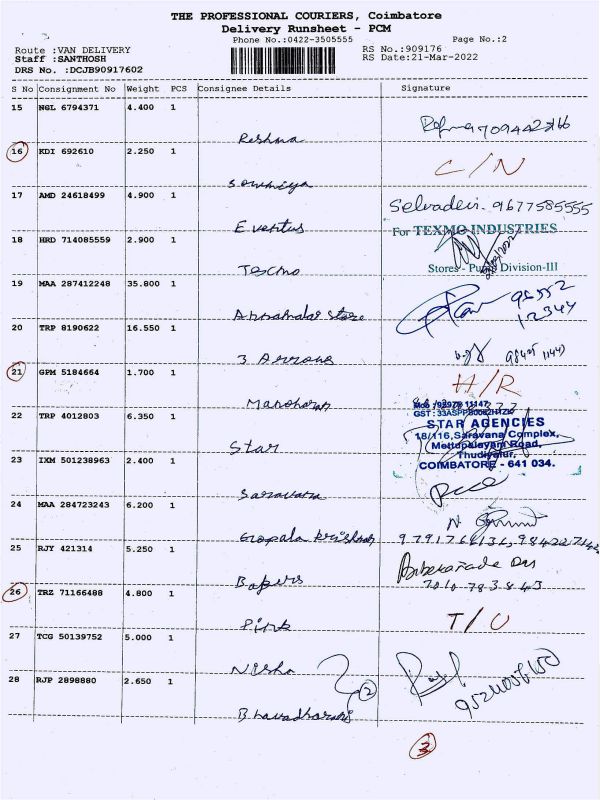 THE PROFESSIONAL COURIERS, Coimbatore
Delivery Runsheet - PCM
Phone No.:0422-3505555 Page No.:2
Route :VAN DELIVERY RS No.:909176
Staff :SANTHOSH RS Date:21-Mar-2022
DRS No. :DCJB90917602
S No Consignment No Weight PCS Consignee Details Signature
15 NGL 6794371 4.400 1
Reshma
16 KDI 692610 2.250 1
Sowmiya C/N
17 AMD 24618499 4.900 1
Eventus Selvadevi. 9677585555
18 HRD 714085559 2.900 1
For TEXMO INDUSTRIES
Texmo
Stores - Pump Division-III
19 MAA 287412248 35.800 1
Annamalar store 98552
12344
20 TRP 8190622 16.550 1
3 Arrows
21 GPM 5184664 1.700 1
Manoharan H/R
22 TRP 4012803 6.350 1
Star
STAR AGENCIES
18/116, Saravana Complex,
Mettupalayam Road,
Thudiyalur,
COIMBATORE - 641 034.
23 IXM 501238963 2.400 1
Saravana
24 MAA 284723243 6.200 1
Gopala krishnan
25 RJY 421314 5.250 1
Bapus 7010 783843
26 TRZ 71166488 4.800 1
Pink T/U
27 TCG 50139752 5.000 1
Nisha
28 RJP 2898880 2.650 1
2
Bhavadharani
3